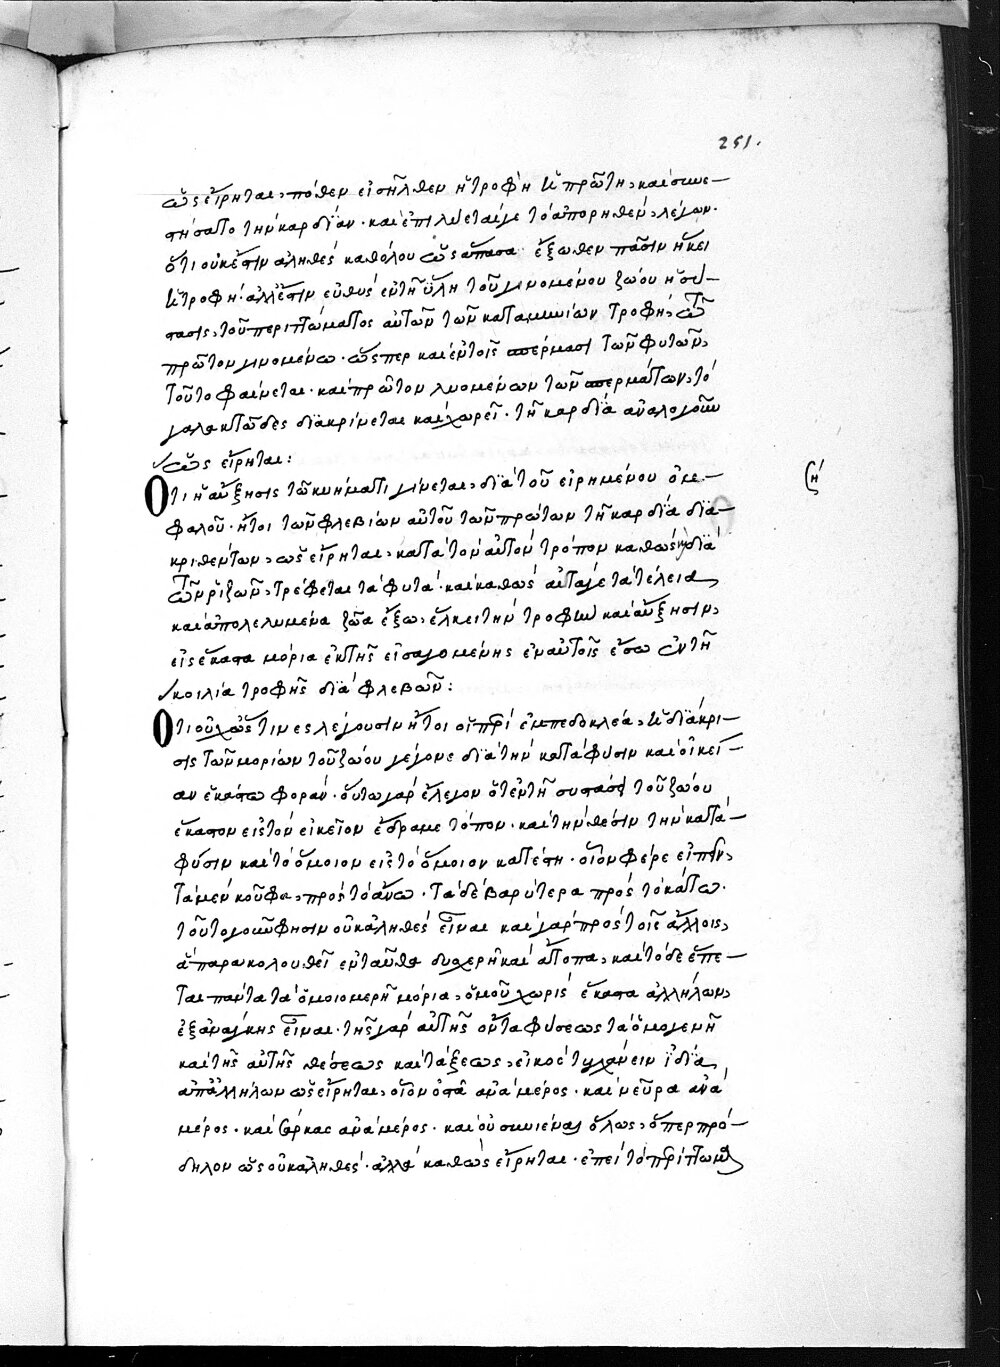 251.
ὡς εἴρηται, πόθεν εἰσῆλθεν ἡ τροφὴ ἡ πρώτη, καὶ συνε-
στήσατο τὴν καρδίαν· καὶ ἐπιλύεται γε τὸ ἀπορηθέν, λέγων·
ὅτι οὐκ ἔστιν ἀληθὲς καθόλου ὡς ἅπασα ἔξωθεν πᾶσιν ἥκει
ἡ τροφή· ἀλλ' ἔστιν εὐθὺς ἐν τῇ ὕλη τοῦ γινομένου ζώου ἡ σύ-
στασις, τοῦ περιττώματος αὐτῶν τῶν καταμηνίων τροφή, τῶ
πρῶτον γινομένω· ὥσπερ καὶ ἐν τοῖς σπέρμασι τῶν φυτῶν,
τοῦτο φαίνεται· καὶ πρῶτον λυομένων τῶν σπερμάτων, τὸ
γαλακτῶδες διακρίνεται καὶ χωρεῖ· τῆ καρδία ἀναλογοῦν
ὡς εἴρηται:
Ὅτι ἡ αὔξησις τῶ κυήματι γίνεται, διὰ τοῦ εἰρημένου ὀμ-
φαλοῦ· ἤτοι τῶν φλεβίων αὐτοῦ τῶν πρώτων τῆ καρδία δια-
κριθέντων, ὡς εἴρηται, κατὰ τὸν αὐτὸν τρόπον καθὼς καὶ διὰ
τῶν ῥιζῶν, τρέφεται τὰ φυτά· καὶ καθὼς αὐτά γε τὰ τέλεια
καὶ ἀπολελυμένα ζῶα ἔξω, ἕλκει τὴν τροφὴν καὶ αὔξησιν,
εἰς ἕκαστα μόρια ἐκ τῆς εἰσαγομένης ἐν αὐτοῖς ἔσω ἐν τῆ
κοιλία τροφῆς διὰ φλεβῶν:
Ὅτι οὐχ ὥς τινες λέγουσιν ἤτοι οἱ περὶ ἐμπεδοκλέα, ἡ διάκρι-
σις τῶν μορίων τοῦ ζώου γέγονε διὰ τὴν κατὰ φύσιν καὶ οἰκεί-
αν ἑκάστω φοράν· οὕτω γὰρ ἔλεγον ὅτ' ἐν τῆ συστάσει τοῦ ζώου
ἕκαστον εἰς τὸν οἰκεῖον ἔδραμε τόπον· καὶ τὴν θέσιν τὴν κατὰ
φύσιν καὶ τὸ ὅμοιον εἰς τὸ ὅμοιον κατέστη· οἷον φέρε εἰπεῖν,
τὰ μὲν κοῦφα, πρὸς τὸ ἄνω· τὰ δὲ βαρύτερα πρὸς τὸ κάτω·
τοῦτο γοῦν φησιν οὐκ ἀληθὲς εἶναι καὶ γὰρ πρὸς τοῖς ἄλλοις,
ἃ παρακολουθεῖ ἐνταῦθα δυσχερῆ καὶ ἄτοπα, καὶ τόδε ἕπε-
ται πάντα τὰ ὁμοιομερῆ μόρια, ὁμοῦ χωρὶς ἕκαστα ἀλλήλων,
ἐξ ἀνάγκης εἶναι· τῆς γὰρ αὐτῆς ὄντα φύσεως τὰ ὁμογενῆ
καὶ τῆς αὐτῆς θέσεως καὶ τάξεως, εἰκὸς τυγχάνειν ἰδία
ἀπ' ἀλλήλων ὡς εἴρηται, οἷον ὀστᾶ ἀνὰ μέρος· καὶ νεῦρα ἀνὰ
μέρος· καὶ σάρκας ἀνὰ μέρος· καὶ οὐ συνιέναι ὅλως, ὅπερ πρό-
δηλον ὡς οὐκ ἀληθές· ἀλλὰ καθὼς εἴρηται· ἐπεὶ τὸ περίττωμα